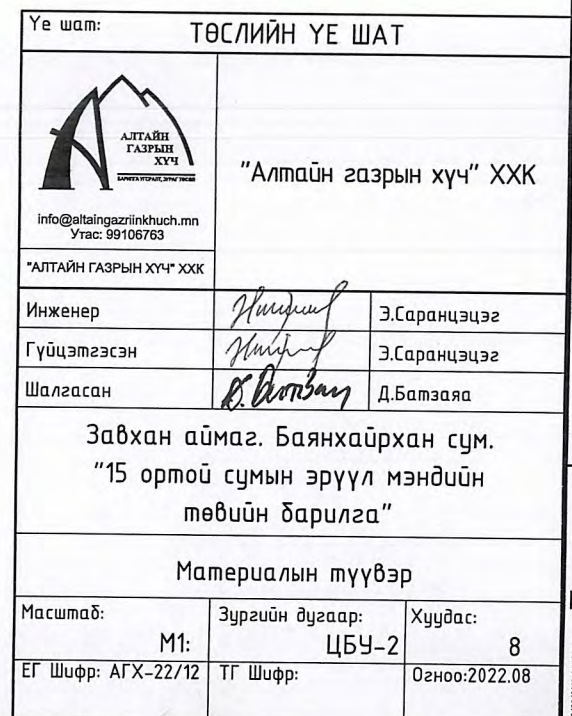 Үе шат:
ТӨСЛИЙН ҮЕ ШАТ
АЛТАЙН
ГАЗРЫН
ХҮЧ
info@altaingazriinkhuch.mn
Утас: 99106763
"АЛТАЙН ГАЗРЫН ХҮЧ" ХХК
"Алтайн газрын хүч" ХХК
Инженер
Э.Саранцэцэг
Гүйцэтгэсэн
Э.Саранцэцэг
Шалгасан
Д.Батзаяа
Завхан аймаг. Баянхайрхан сум.
"15 ортой сумын эрүүл мэндийн
төвийн барилга"
Материалын түүвэр
Масштаб:
М1:
Зургийн дугаар:
ЦБУ-2
Хуудас:
8
ЕГ Шифр: АГХ-22/12
ТГ Шифр:
Огноо:2022.08